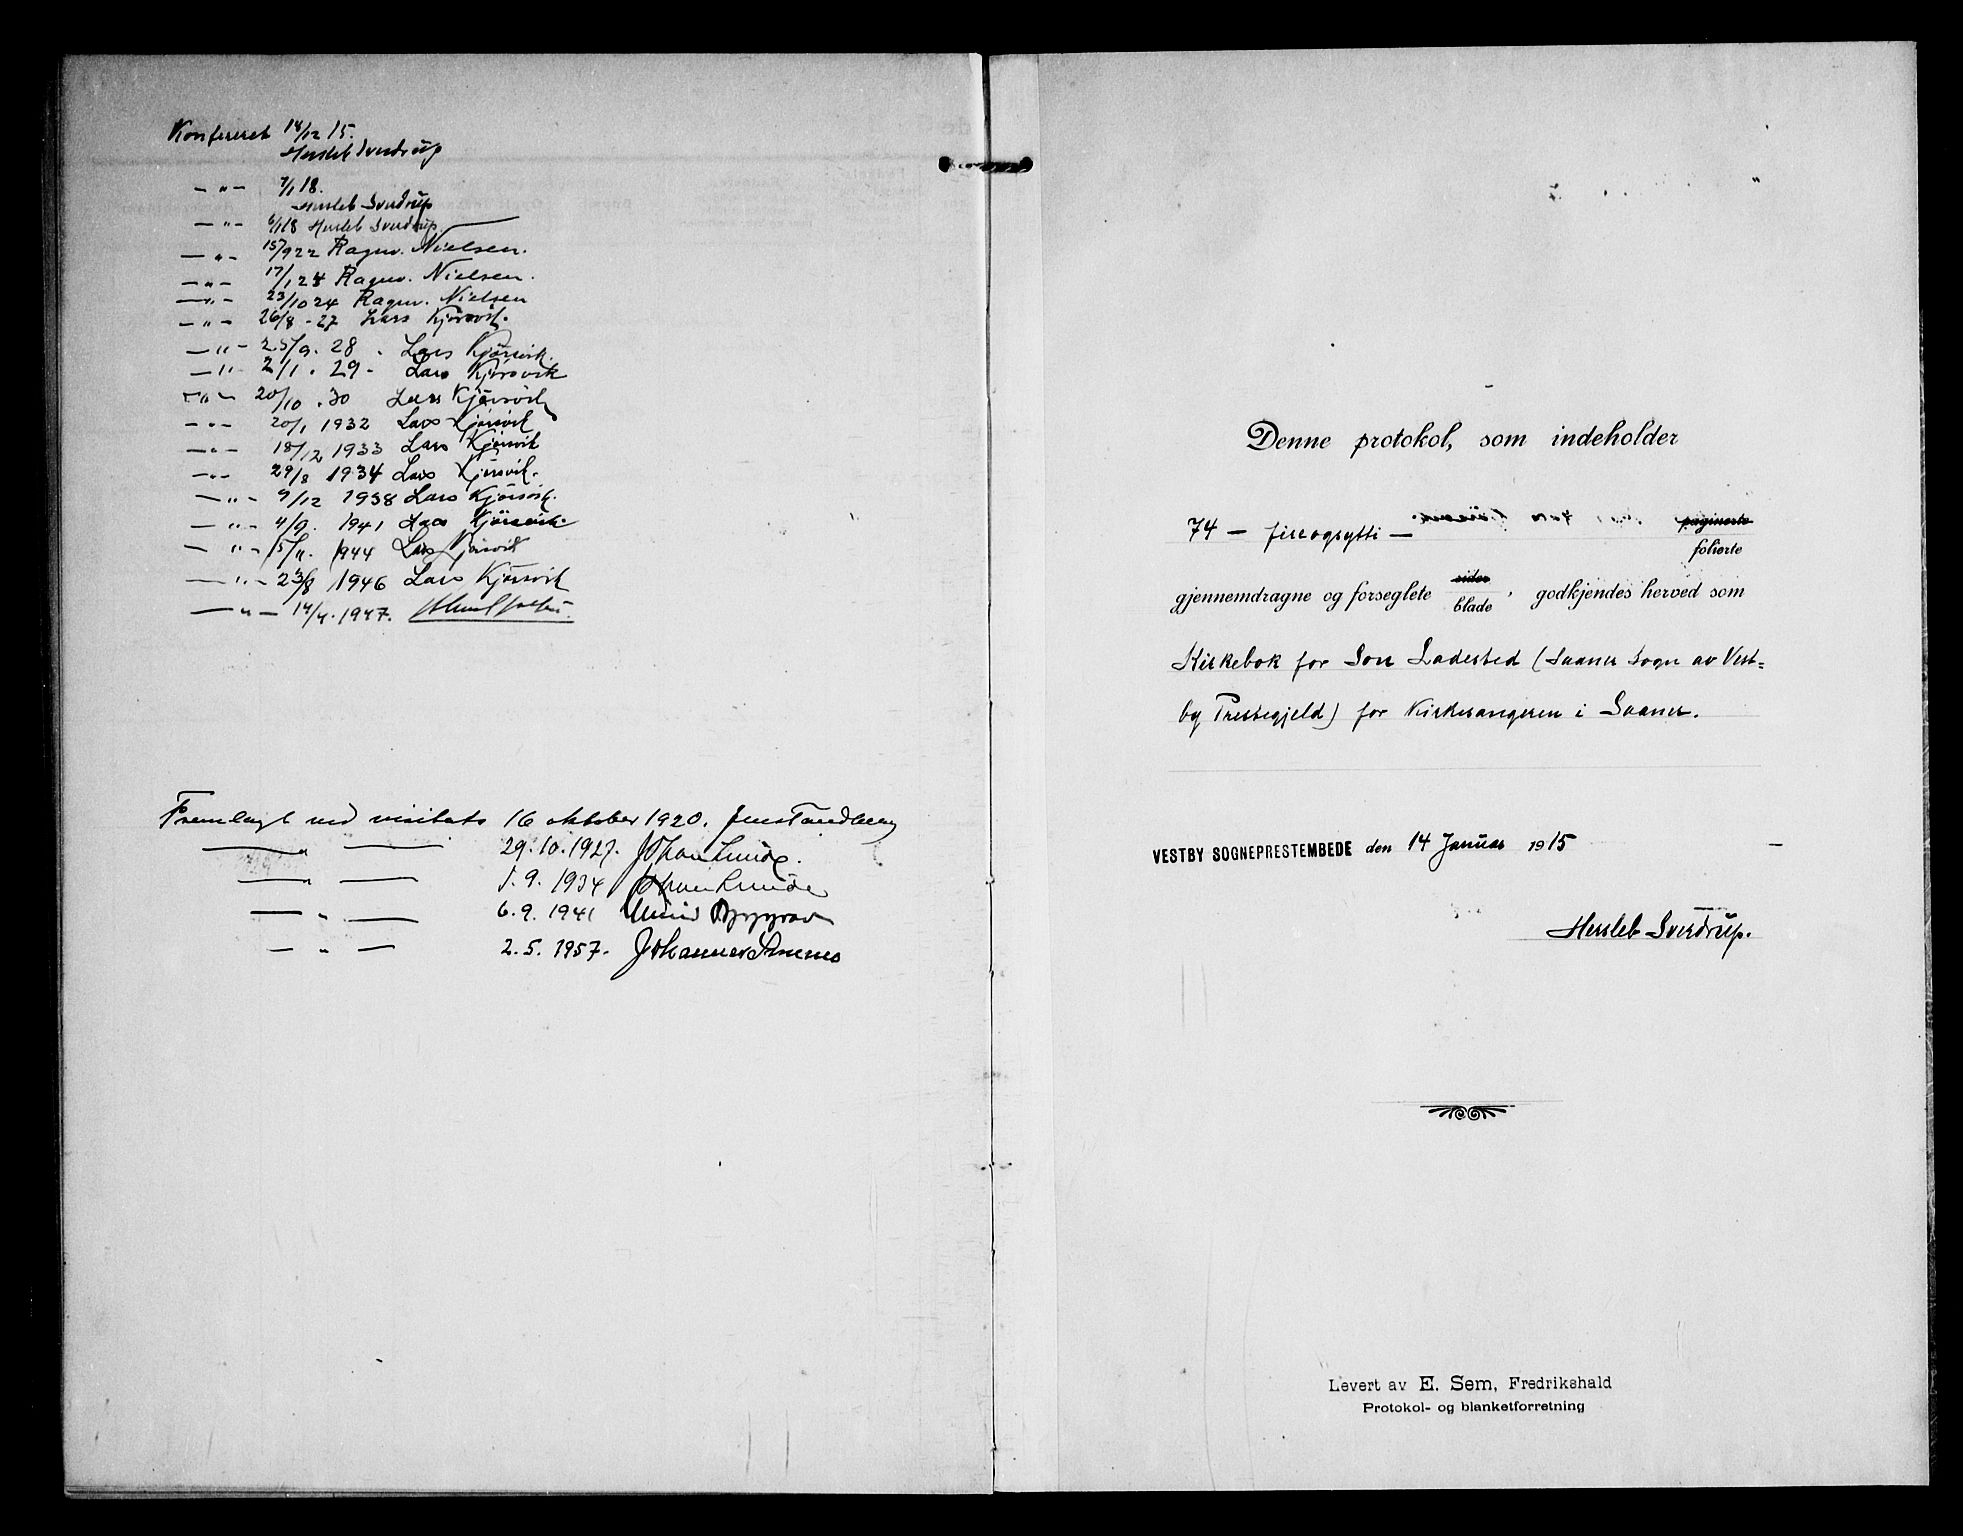 Konfereret 14/12 15.
Hersleb Sverdrup
— " — 7/1 18.
Hersleb Sverdrup
— " — 6/1 18 Hersleb Sverdrup.
— " — 15/9 22 Ragnv. Nielsen.
— " — 17/1 24 Ragnv. Nielsen.
— " — 23/10 24 Ragnv. Nielsen
— " — 26/8 - 27 Lars Kjörsvik.
— " — 25/9. 28. Lars Kjörsvik.
— " — 2/1. 29 - Lars Kjörsvik
— " — 20/10. 30 Lars Kjörsvik
— " — 20/1 1932 Lars Kjörsvik
— " — 18/12 1933 Lars Kjörsvik
— " — 29/8 1934 Lars Kjörsvik.
— " — 9/12 1938 Lars Kjörsvik.
— " — 4/9. 1941 Lars Kjörsvik.
— " — 15/11. 1944 Lars Kjörsvik
— " — 23/8 1946 Lars Kjörsvik
— " — 14/4. 1947.
Fremlagt ved visitats 16 oktober 1920. Jens Tandberg
— " — 29.10.1927. Johan Lunde.
— " — 1.9. 1934 Johan Lunde
— " — 6.9. 1941 Berggrav
— " — 2.5. 1957. Johannes Smemo
Denne protokol, som indeholder
74 — firrogsytti — paginerte
folierte
gjennemdragne og forseglete sider
blade, godkjendes herved som
Kirkebok for Son Ladested (Saaner Sogn av Vest=
by Prestegjeld) for Kirkesangeren i Saaner.
VESTBY SOGNEPRESTEMBEDE den 14 Januar 1915
Hersleb Sverdrup.
Levert av E. Sem, Fredrikshald
Protokol- og blanketforretning